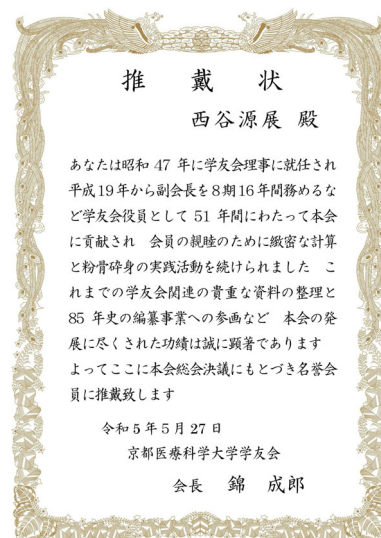 推 戴 状
西谷源展 殿
あなたは昭和 47 年に学友会理事に就任され
平成19年から副会長を8期16年間務めるな
ど学友会役員として 51 年間にわたって本会
に貢献され　会員の親睦のために緻密な計算
と粉骨砕身の実践活動を続けられました　こ
れまでの学友会関連の貴重な資料の整理と
85 年史の編纂事業への参画など　本会の発
展に尽くされた功績は誠に顕著であります
よってここに本会総会決議にもとづき名誉会
員に推戴致します
令和５年５月 27 日
京都医療科学大学学友会
会長　錦　成郎